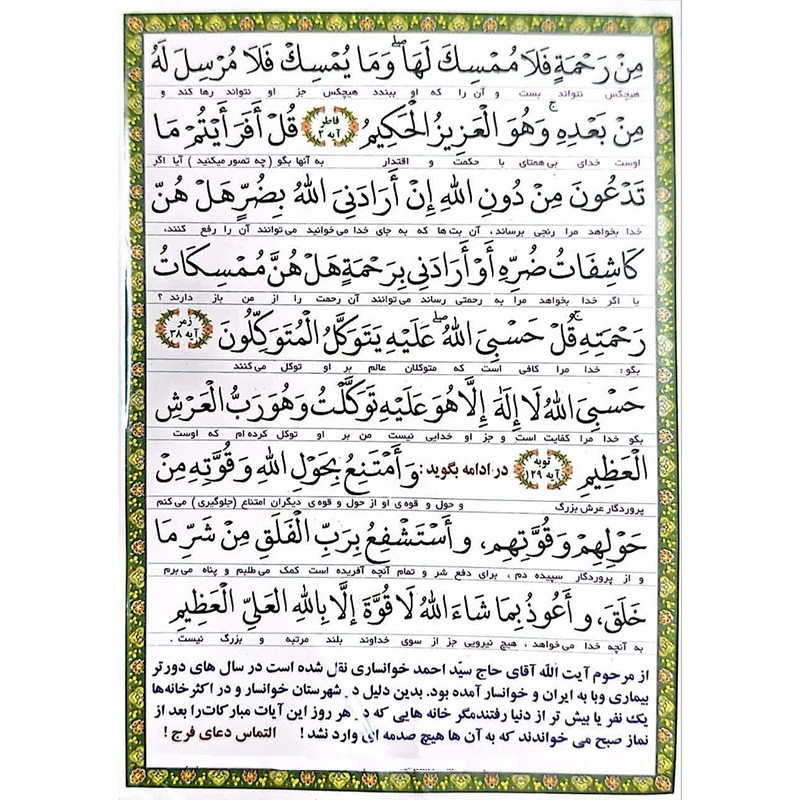 مِنْ رَحْمَةٍ فَلَا مُمْسِكَ لَهَا ۖ وَمَا يُمْسِكْ فَلَا مُرْسِلَ لَهُ
هیچکس نتواند بست و آن را که او ببندد هیچکس جز او نتواند رها کند و
مِنْ بَعْدِهِ ۚ وَهُوَ الْعَزِيزُ الْحَكِيمُ فاطر آیه ۲ قُلْ أَفَرَأَيْتُمْ مَا
اوست خدای بی همتای با حکمت و اقتدار به آنها بگو ( چه تصور میکنید ) آیا اگر
تَدْعُونَ مِنْ دُونِ اللهِ إِنْ أَرَادَنِيَ اللهُ بِضُرٍّ هَلْ هُنَّ
خدا بخواهد مرا رنجی برساند، آن بت ها که به جای خدا می خوانید می توانند آن را رفع کنند،
كَاشِفَاتُ ضُرِّهِ أَوْ أَرَادَنِي بِرَحْمَةٍ هَلْ هُنَّ مُمْسِكَاتُ
یا اگر خدا بخواهد مرا به رحمتی رساند می توانند آن رحمت را از من باز دارند ؟
رَحْمَتِهِ ۚ قُلْ حَسْبِيَ اللهُ ۖ عَلَيْهِ يَتَوَكَّلُ الْمُتَوَكِّلُونَ زمر آیه ۳۸
بگو : خدا مرا کافی است که متوکلان عالم بر او توکل می کنند
حَسْبِيَ اللهُ لَا إِلَهَ إِلَّا هُوَ عَلَيْهِ تَوَكَّلْتُ وَهُوَ رَبُّ الْعَرْشِ
بگو خدا مرا کفایت است و جز او خدایی نیست من بر او توکل کرده ام که اوست
الْعَظِيمِ توبه آیه ۱۲۹ در ادامه بگوید : وَ أَمْتَنِعُ بِحَوْلِ اللهِ وَ قُوَّتِهِ مِنْ
پروردگار عرش بزرگ و حول و قوه ی او از حول و قوه ی دیگران امتناع (جلوگیری) می کنم
حَوْلِهِمْ وَ قُوَّتِهِمْ، وَ أَسْتَشْفِعُ بِرَبِّ الْفَلَقِ مِنْ شَرِّ مَا
و از پروردگار سپیده دم ، برای دفع شر و تمام آنچه آفریده است کمک می طلبم و پناه می برم
خَلَقَ، وَ أَعُوذُ بِمَا شَاءَ اللهُ لَا قُوَّةَ إِلَّا بِاللهِ الْعَلِيِّ الْعَظِيمِ
به آنچه خدا می خواهد ، هیچ نیرویی جز از سوی خداوند بلند مرتبه و بزرگ نیست .
از مرحوم آیت الله آقای حاج سیّد احمد خوانساری نقل شده است در سال های دورتر
بیماری وبا به ایران و خوانسار آمده بود. بدین دلیل د ر شهرستان خوانسار و در اکثر خانه‌ها
یک نفر یا بیش تر از دنیا رفتندمگر خانه هایی که د ر هر روز این آیات مبارکات را بعد از
نماز صبح می خواندند که به آن ها هیچ صدمه ای وارد نشد ! التماس دعای فرج !